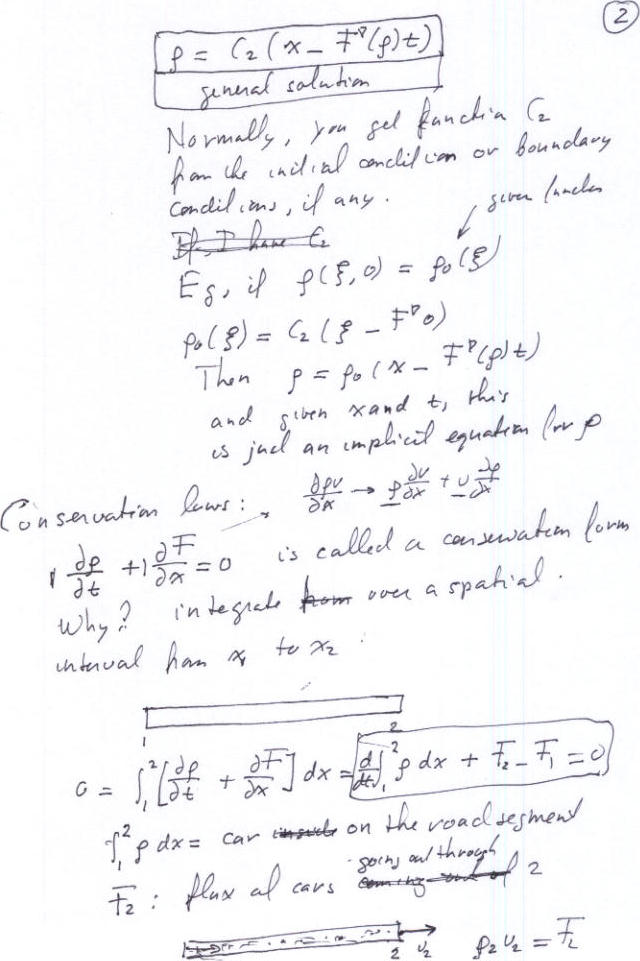 2
ρ = C₂(x − F'(ρ)t)
general solution
Normally, you get function C₂
from the initial condition or boundary
conditions, if any.
given function
If I have C₂
Eg, if ρ(ξ, 0) = ρ₀(ξ)
ρ₀(ξ) = C₂(ξ − F' 0)
Then ρ = ρ₀(x − F'(ρ)t)
and given x and t, this
is just an implicit equation for ρ
Conservation laws: ∂ρv/∂x → ρ ∂v/∂x + v ∂ρ/∂x
1 ∂ρ/∂t + 1 ∂F/∂x = 0 is called a conservation form
Why? integrate from over a spatial
interval from x₁ to x₂:
1 2
0 = ∫₁² [∂ρ/∂t + ∂F/∂x] dx = d/dt ∫₁² ρ dx + F₂ − F₁ = 0
∫₁² ρ dx = car inside on the road segment
going out through
F₂ : flux of cars coming out of 2
2 v₂ ρ₂v₂ = F₂